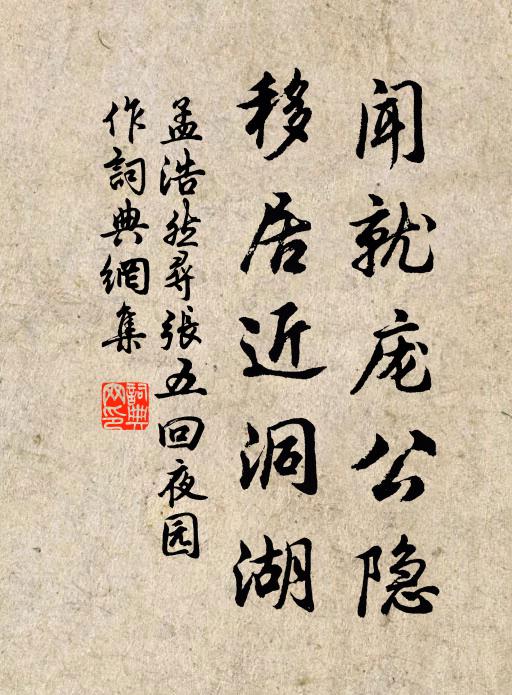 闻就庞公隐
移居近洞湖
孟浩然寻张五回夜园
作词典網集
詞典网印